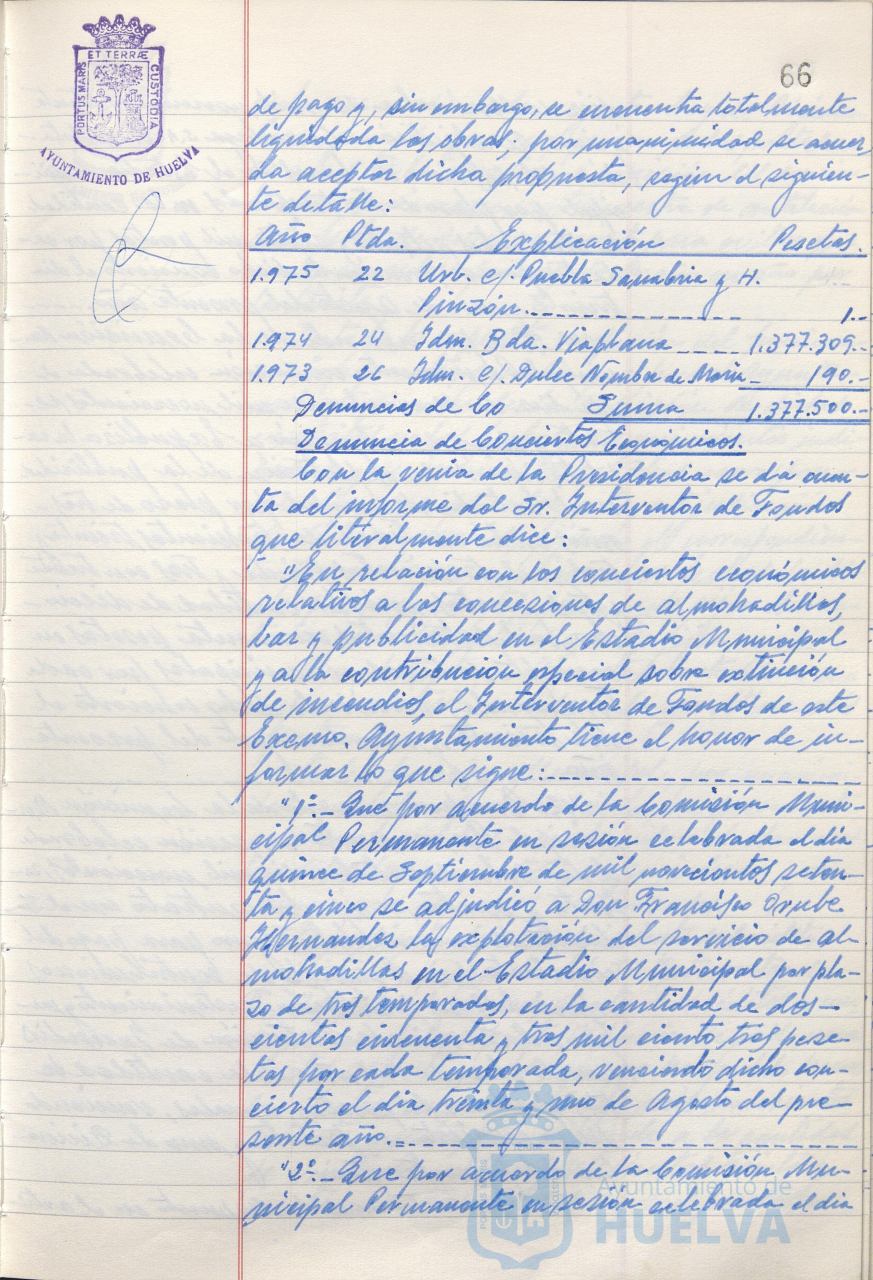 66
PORTUS MARIS ET TERRÆ CUSTODIA
AYUNTAMIENTO DE HUELVA
de pago y, sin embargo, se encuentra totalmente
liquidada las obras; por unanimidad se acuer-
da aceptar dicha propuesta, según el siguien-
te detalle:
Año Ptda. Explicación Pesetas.
1.975 22 Urb. c/. Puebla Sanabria y H.
Pinzón. 1.-
1.974 24 Idm. Bda. Viaplana 1.377.309.-
1.973 26 Idm. c/. Dulce Nombre de María 190.-
Denuncias de Co Suma 1.377.500.-
Denuncia de Conciertos Económicos.
Con la venia de la Presidencia se dá cuen-
ta del informe del Sr. Interventor de Fondos
que literalmente dice:
"En relación con los conciertos económicos
relativos a las concesiones de almohadillas,
bar y publicidad en el Estadio Municipal
y a la contribución especial sobre extinción
de incendios, el Interventor de Fondos de este
Excmo. Ayuntamiento tiene el honor de in-
formar lo que sigue:
"1º.- Que por acuerdo de la Comisión Muni-
cipal Permanente en sesión celebrada el día
quince de Septiembre de mil novecientos seten-
ta y cinco se adjudicó a Don Francisco Orube
Hernandez la explotación del servicio de al-
mohadillas en el Estadio Municipal por pla-
zo de tres temporadas, en la cantidad de dos-
cientas cincuenta y tres mil ciento tres pese-
tas por cada temporada, venciendo dicho con-
cierto el día treinta y uno de Agosto del pre-
sente año.
"2º.- Que por acuerdo de la Comisión Mu-
nicipal Permanente en sesión celebrada el día
Ayuntamiento de
HUELVA